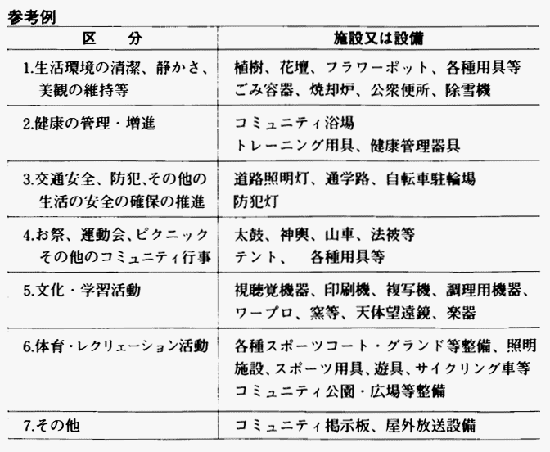 参考例
区 分 施設又は設備
1.生活環境の清潔、静かさ、 植樹、花壇、フラワーポット、各種用具等
美観の維持等 ごみ容器、焼却炉、公衆便所、除雪機
2.健康の管理・増進 コミュニティ浴場
トレーニング用具、健康管理器具
3.交通安全、防犯、その他の 道路照明灯、通学路、自転車駐輪場
生活の安全の確保の推進 防犯灯
4.お祭、運動会、ピクニック 太鼓、神輿、山車、法被等
その他のコミュニティ行事 テント、 各種用具等
5.文化・学習活動 視聴覚機器、印刷機、複写機、調理用機器、
ワープロ、窯等、天体望遠鏡、楽器
6.体育・レクリェーション活動 各種スポーツコート・グランド等整備、照明
施設、スポーツ用具、遊具、サイクリング車等
コミュニティ公園・広場等整備
7.その他 コミュニティ掲示板、屋外放送設備